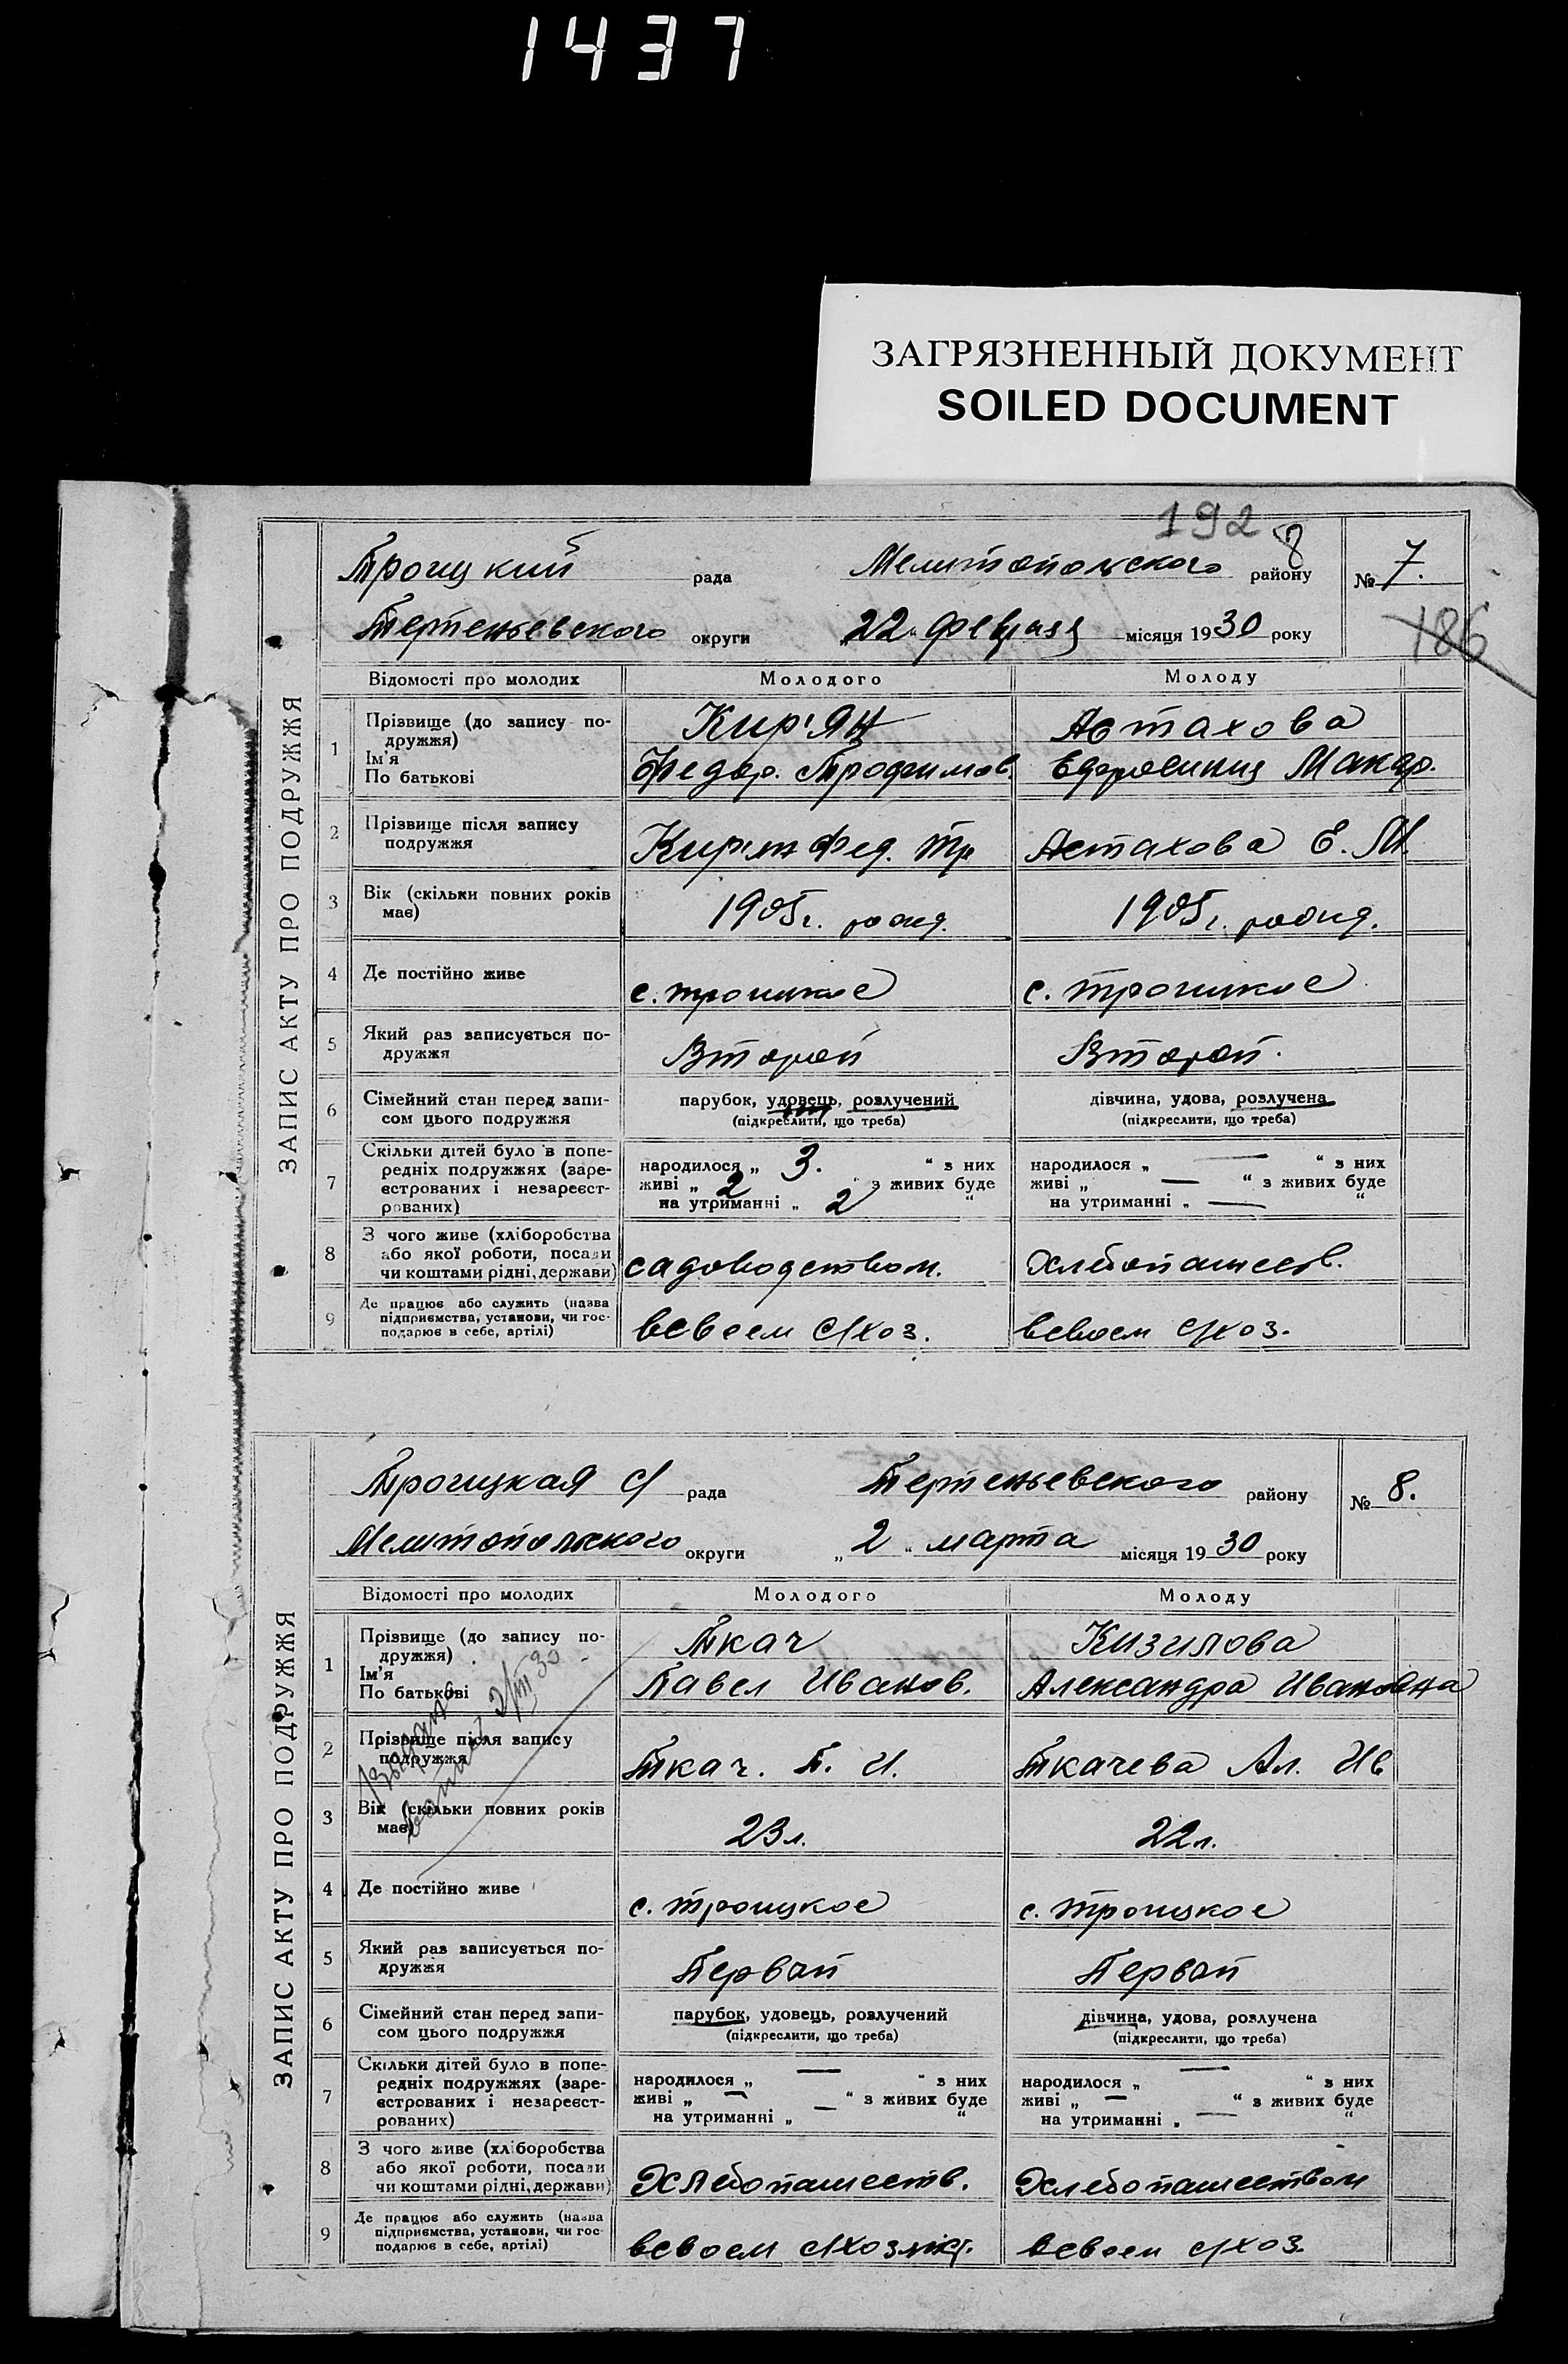 1437
ЗАГРЯЗНЕННЫЙ ДОКУМЕНТ
SOILED DOCUMENT
192
8
ЗАПИС АКТУ ПРО ПОДРУЖЖЯ
Троицкий рада Мелитопольского району № 7.
Терпеньевского округи „22“ февраля місяця 1930 року
186
Відомості про молодих Молодого Молоду
1 Прізвище (до запису по-
дружжя) Кир'ян Астахова
Ім'я
По батькові Федор. Трофимов. Ефросиния Макар.
2 Прізвище після запису
подружжя Кир'ян Фед. Тр Астахова Е. М.
3 Вік (скільки повних років
має) 1905г. рожд. 1905г. рожд.
4 Де постійно живе с. троицкое с. троицкое
5 Який раз записується по-
дружжя Второй Второй.
6 Сімейний стан перед запи- парубок, удовець, розлучений дівчина, удова, розлучена
сом цього подружжя (підкреслити, що треба) (підкреслити, що треба)
7 Скільки дітей було в попе-
редніх подружжях (заре- народилося „ 3. “ з них народилося „ — “ з них
єстрованих і незареєст- живі „ 2 “ з живих буде живі „ — “ з живих буде
рованих) на утриманні „ 2 “ на утриманні „ — “
8 З чого живе (хліборобства
або якої роботи, посади
чи коштами рідні, держави) садоводством. Хлебопашеств.
9 Де працює або служить (назва
підприємства, установи, чи гос-
подарює в себе, артілі) всвоем с/хоз. всвоем с/хоз.
ЗАПИС АКТУ ПРО ПОДРУЖЖЯ
Троицкая с/ рада Терпеньевского району № 8.
Мелитопольского округи „2“ марта місяця 1930 року
Відомості про молодих Молодого Молоду
1 Прізвище (до запису по-
дружжя) Ткач Кизилова
Ім'я
По батькові Павел Иванов. Александра Ивановна
2/III 30
2 Прізвище після запису
подружжя Ткач. П. И. Ткачева Ал. Ив
3 Вік (скільки повних років
має) 23л. 22л.
4 Де постійно живе с. троицкое с. троицкое
5 Який раз записується по-
дружжя Первой Первой
6 Сімейний стан перед запи- парубок, удовець, розлучений дівчина, удова, розлучена
сом цього подружжя (підкреслити, що треба) (підкреслити, що треба)
7 Скільки дітей було в попе-
редніх подружжях (заре- народилося „ — “ з них народилося „ — “ з них
єстрованих і незареєст- живі „ — “ з живих буде живі „ — “ з живих буде
рованих) на утриманні „ — “ на утриманні „ — “
8 З чого живе (хліборобства
або якої роботи, посади
чи коштами рідні, держави) Хлебопашеств. Хлебопашеством
9 Де працює або служить (назва
підприємства, установи, чи гос-
подарює в себе, артілі) всвоем с/хозяйст. всвоем с/хоз.